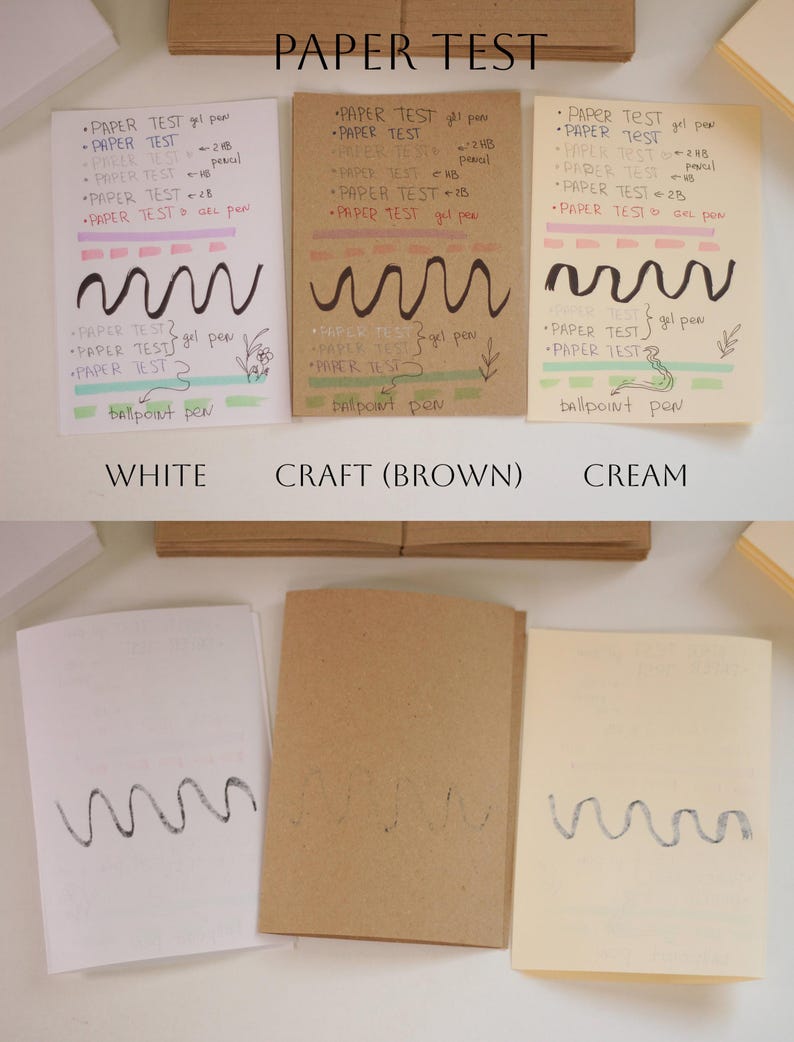 PAPER TEST
•PAPER TEST gel pen
•PAPER TEST
•PAPER TEST ♡ ← 2HB
pencil
•PAPER TEST ← HB
•PAPER TEST ← 2B
•PAPER TEST ♡ GEL PEN
•PAPER TEST
•PAPER TEST } gel pen
•PAPER TEST
ballpoint pen
•PAPER TEST gel pen
•PAPER TEST
•PAPER TEST ♡ ← 2HB
pencil
•PAPER TEST ← HB
•PAPER TEST ← 2B
•PAPER TEST gel pen
•PAPER TEST
•PAPER TEST } gel pen
•PAPER TEST
ballpoint pen
•PAPER TEST gel pen
•PAPER TEST
•PAPER TEST ♡ ← 2HB
pencil
•PAPER TEST ← HB
•PAPER TEST ← 2B
•PAPER TEST ♡ GEL PEN
•PAPER TEST
•PAPER TEST } gel pen
•PAPER TEST
ballpoint pen
WHITE
CRAFT (BROWN)
CREAM